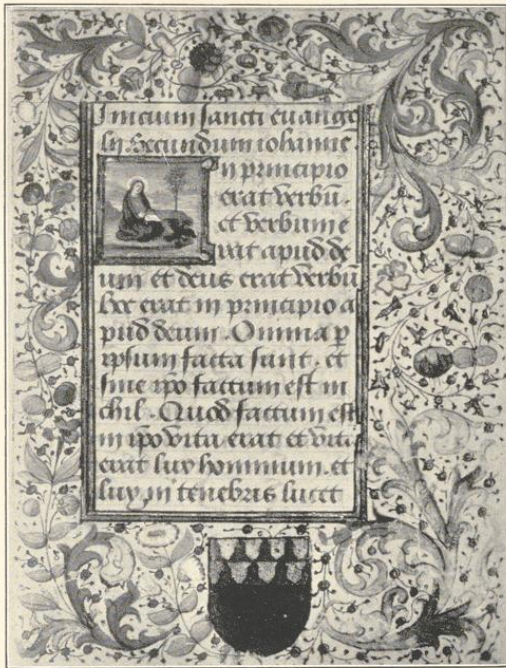 Inicium sancti euange
lii Secundum iohanne.
n principio
erat verbū.
et verbum e
rat apud de
um et deus erat verbū
hoc erat in principio a
pud deum. Omnia p̄
ipsum facta sunt. et
sine ip̄o factum est ni
chil. Quod factum est
in ip̄o vita erat et vita
erat lux hominum. et
lux in tenebris lucet